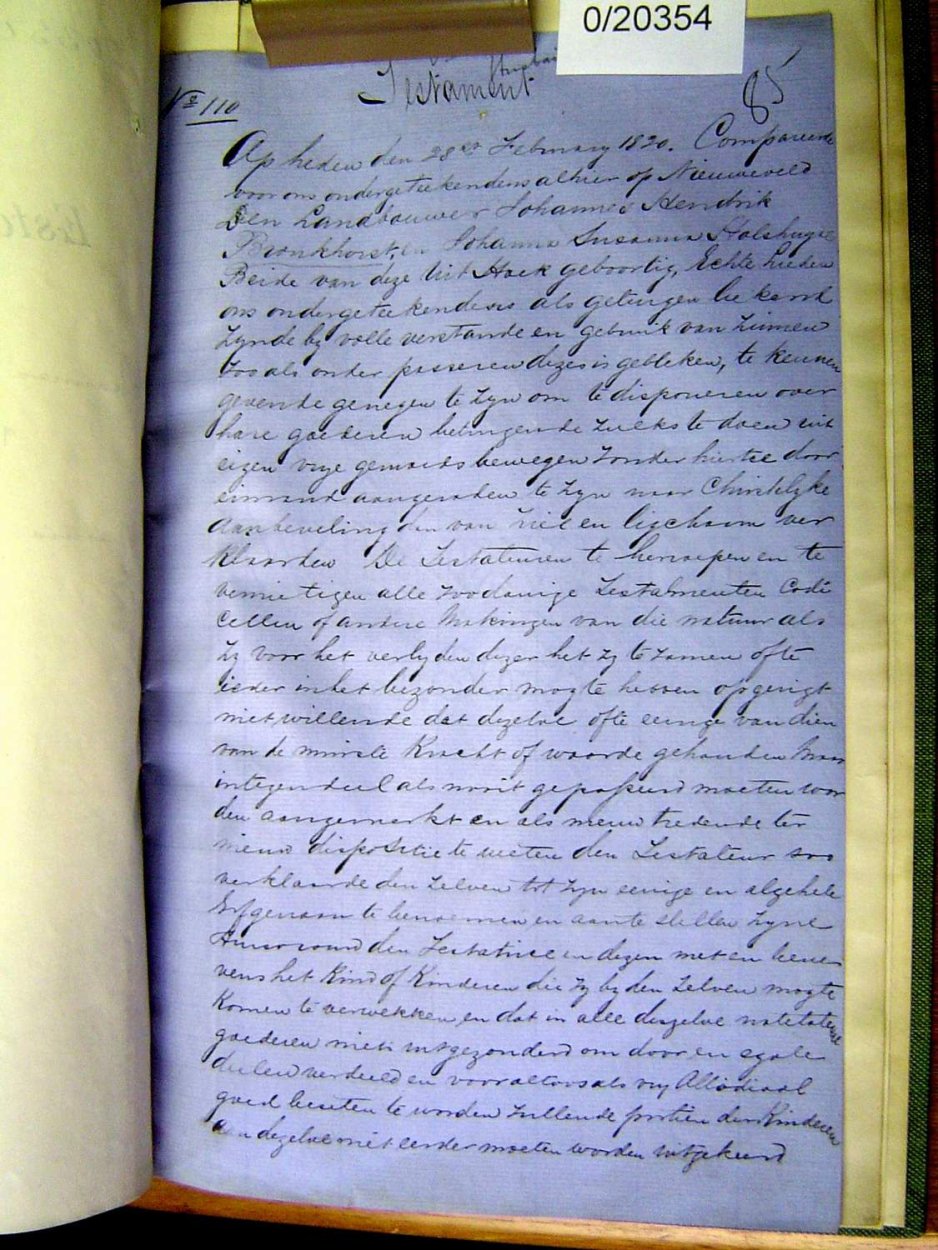 0/20354
85
Testament
No 110
Op heden den 28st February 1820. Compareerde
voor ons ondergeteekendens alhier op Nieuweveld
Den Landbouwer Johannes Hendrik
Bronkhorst, en Johanna Susanna
Beide van deze Uit Hoek geboortig, Echte Lieden
ons ondergeteekendens als getuigen bekend
zynde by volle verstande en gebruik van zinnen
zoo als onder passeren dezes is gebleken, te kennen
gevende genegen te zyn om te disponeren over
hare goederen betuigende zulks te doen uit
eigen vrye gemoeds bewegen zonder hiertoe door
eimand aangeraden te zyn naar Christelyke
aanbeveling den van ziel en ligchaam ver
klaarden De Testateuren te herroepen en te
vernietigen alle zoodanige Testamenten Codi
cellen of andere Makingen van die natuur als
zy voor het verlyden dezer het zy te zamen ofte
ieder in het bezonder mogte hebben opgerigt
niet willende dat dezelve ofte eenige van dien
van de minste Kracht of waarde gehouden Maar
integendeel als nooit gepasseerd moeten wor
den aangemerkt en als nieuw tredende ter
nieuw dispositie te weten den Testateur soo
verklaarde den Zelven tot zyn eenige en algehele
Erfgenaam te benoemen en aante stellen zyne
Huisvrouw den Testatrice in dezen met en bene
vens het Kind of Kinderen die zy by den Zelven mogte
Komen te verwekken, en dat in alle dezelve
goederen niets uitgezonderd om door en egale
deelen verdeeld en voor altoos als vry Allodiaal
goed beseten te worden zullende portien der Kinderen
aan dezelve niet eerder moeten worden uitgekeerd